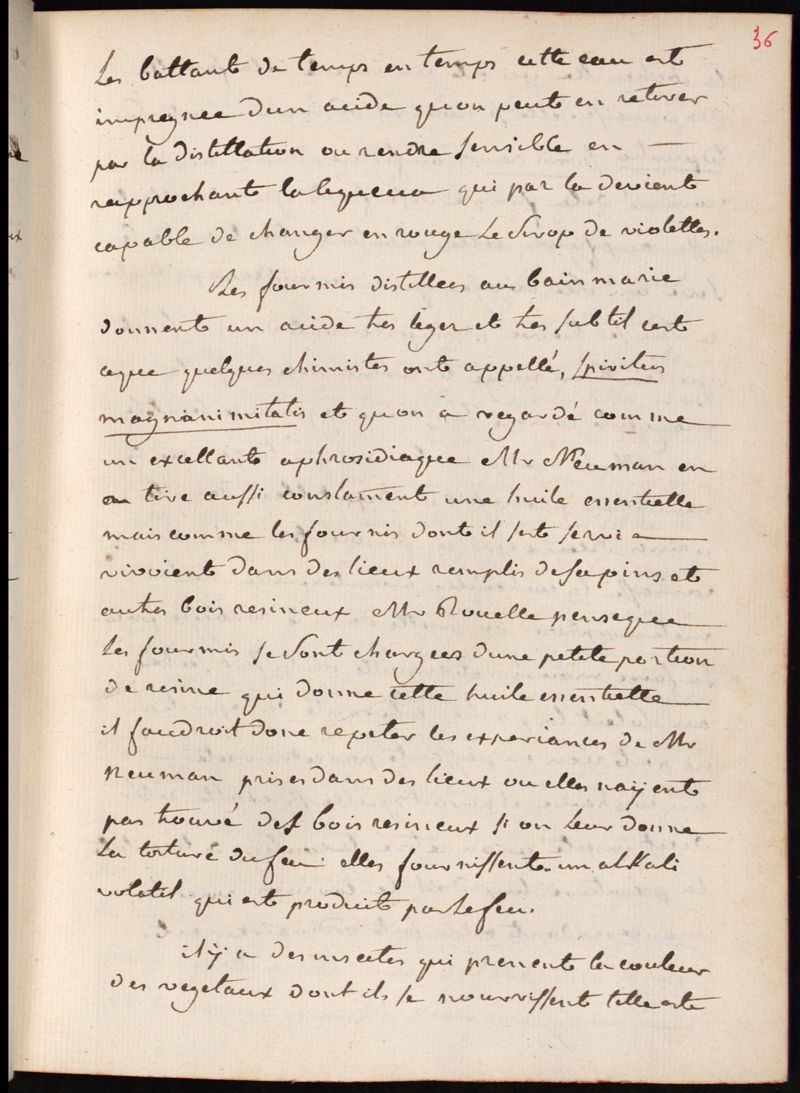 36
Les battant de temps en temps cette eau est
impregnee dun acide quon peut en retirer
par la distillation ou rendre sensible en —
rapprochant la liqueur qui par la devient
capable de changer en rouge le Sirop de violettes.
Les fourmis distillees au bain marie
donnent un acide tres leger et tres subtil cest
ceque quelques chimistes ont appellé, spiritus
magnanimitatis et quon a regardé comme
un excellant aphrosidiaque Mr Neuman en
tire aussi constament une huile essentielle
mais comme les fourmis dont il sest servi —
vivoient dans des lieux remplis de sapins et
autres bois resineux Mr Rouelle penseque
les fourmis se Sont chargees dune petite portion
de resine qui donne cette huile essentielle
il faudroit donc repeter les experiances de Mr
Neuman prises dans des lieux ou elles nayent
pas trouvé des bois resineux si on leur donne
La torture du feu elles fournissent un alkali
volatil qui est produit par le feu.
il y a des insectes qui prenent la couleur
des vegetaux dont ils se nourrissent telle est